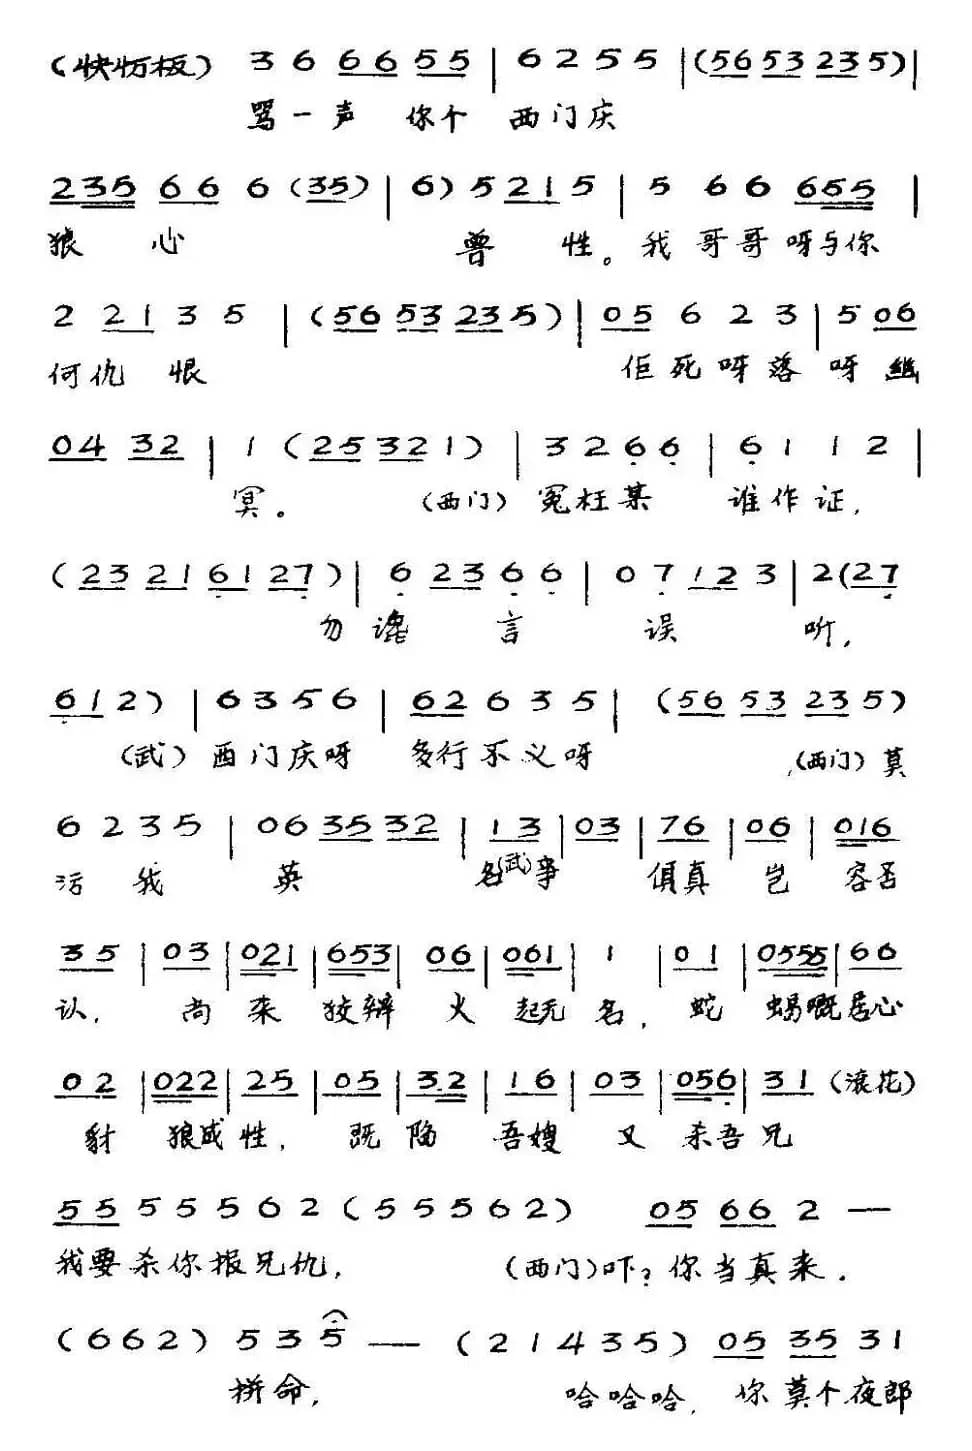 (快忄万板) 3 6 6 6 5 5 | 6 2 5 5 | (5 6 5 3 2 3 5) |
骂一声 你个 西门庆
2 3 5 6 6 6 (3 5) | 6) 5 2 1 5 | 5 6 6 6 5 5 |
狼 心 兽 性。我 哥哥呀与你
2 2 1 3 5 | (5 6 5 3 2 3 5) | 0 5 6 2 3 | 5 0 6
何仇 恨 佢死呀落呀 幽
0 4 3 2 | 1 (2 5 3 2 1) | 3 2 6 6 | 6 1 1 2 |
冥。 (西门) 冤枉某 谁作证,
(2 3 2 1 6 1 2 7) | 6 2 3 6 6 | 0 7 1 2 3 | 2 (2 7
勿谗 言 误 听,
6 1 2) | 6 3 5 6 | 6 2 6 3 5 | (5 6 5 3 2 3 5)
(武) 西门庆呀 多行不义呀 (西门) 莫
6 2 3 5 | 0 6 3 5 3 2 | 1 3 | 0 3 | 7 6 | 0 6 | 0 1 6
污 我 英 名(武)事 俱真 岂 容否
3 5 | 0 3 | 0 2 1 | 6 5 3 | 0 6 | 0 6 1 | 1 | 0 1 | 0 5 5 5 | 6 6
认, 尚 来 狡辩 火 起无 名, 蛇 蝎嘅居心
0 2 | 0 2 2 | 2 5 | 0 5 | 3. 2 | 1 6 | 0 3 | 0 5 6 | 3 1 (滚花)
豺 狼成 性, 既 陷 吾嫂 又 杀吾兄
5 5 5 5 5 6 2 (5 5 5 6 2) 0 5 6 6 2 —
我要杀你报兄仇, (西门)吓?你当真来.
(6 6 2) 5 3 5 — (2 1 4 3 5) 0 5 3 5 3 1
拼命, 哈哈哈, 你莫个夜郎